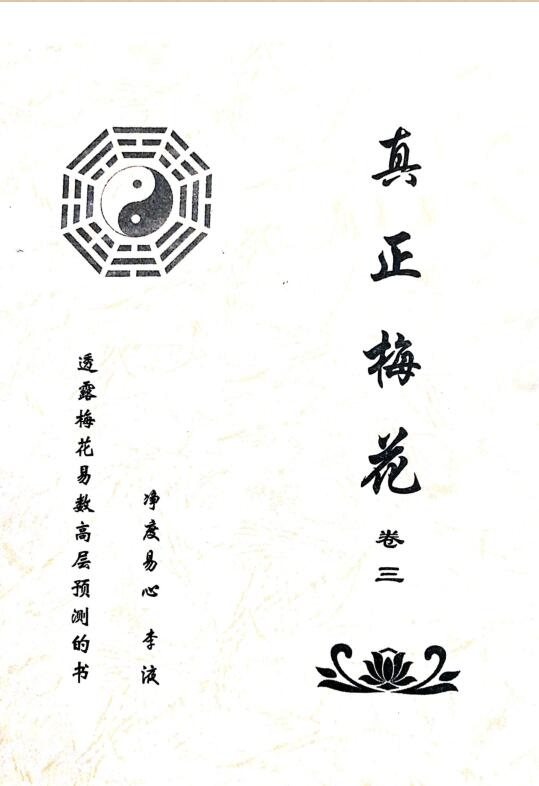 真正梅花 卷三
净度易心 李液
透露梅花易数高层预测的书